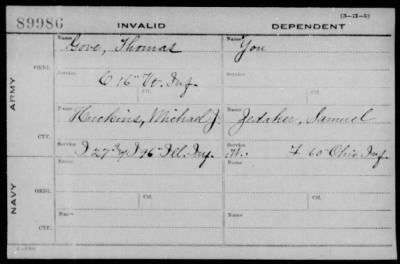 89986 INVALID DEPENDENT (3-12-3)
Name Gove, Thomas Name You
ORIG.
Service C 16" Vt. Inf. Service
Ctf. Ctf.
ARMY
Name Huckins, Michael J. Name Zedaker, Samuel
CTF. Service I 27 & I 96" Ill. Inf. Service W. F 60 Ohio Inf.
NAVY
Name Name
ORIG.
Ctf. Ctf.
Name Name
CTF.